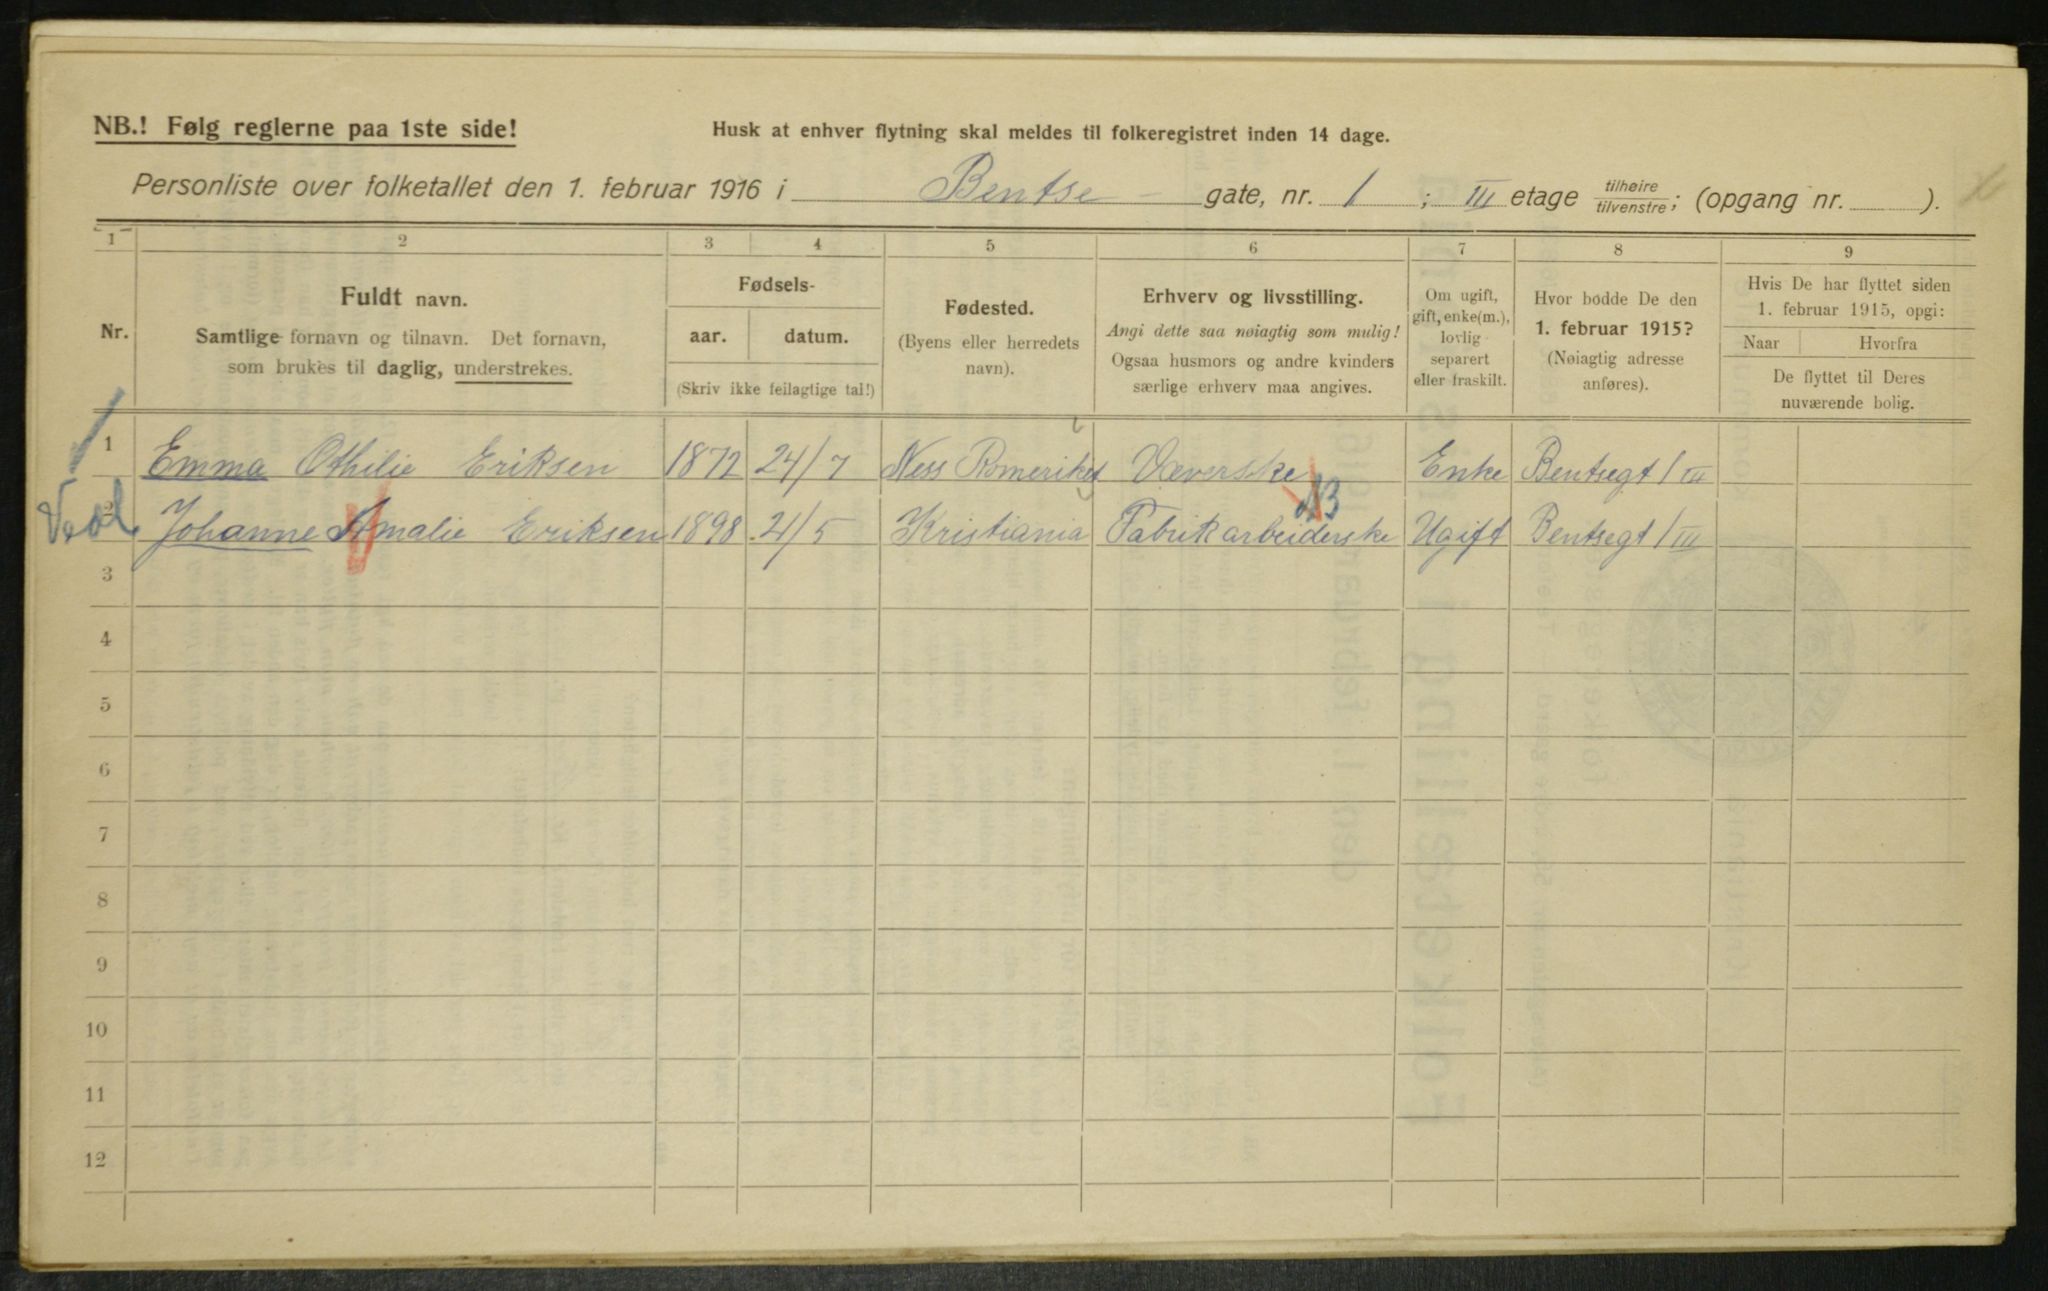 NB.! Følg reglerne paa 1ste side!
Husk at enhver flytning skal meldes til folkeregistret inden 14 dage.
Personliste over folketallet den 1. februar 1916 i Bentse gate, nr. 1 ; III etage tilhøire/tilvenstre; (opgang nr. ).
1 2 3 4 5 6 7 8 9
Nr.
Fuldt navn.
Samtlige fornavn og tilnavn. Det fornavn,
som brukes til daglig, understrekes.
Fødsels-
aar. datum.
(Skriv ikke feilagtige tal!)
Fødested.
(Byens eller herredets
navn).
Erhverv og livsstilling.
Angi dette saa nøiagtig som mulig!
Ogsaa husmors og andre kvinders
særlige erhverv maa angives.
Om ugift,
gift, enke(m.),
lovlig
separert
eller fraskilt.
Hvor bodde De den
1. februar 1915?
(Nøiagtig adresse
anføres).
Hvis De har flyttet siden
1. februar 1915, opgi:
Naar Hvorfra
De flyttet til Deres
nuværende bolig.
1 Emma Othilie Eriksen 1872 24/7 Ness Romeriket Væverske Enke Bentsegt 1 III
2 Johanne Amalie Eriksen 1898 21/5 Kristiania Fabrikarbeiderske Ugift Bentsegt 1 III
3
4
5
6
7
8
9
10
11
12